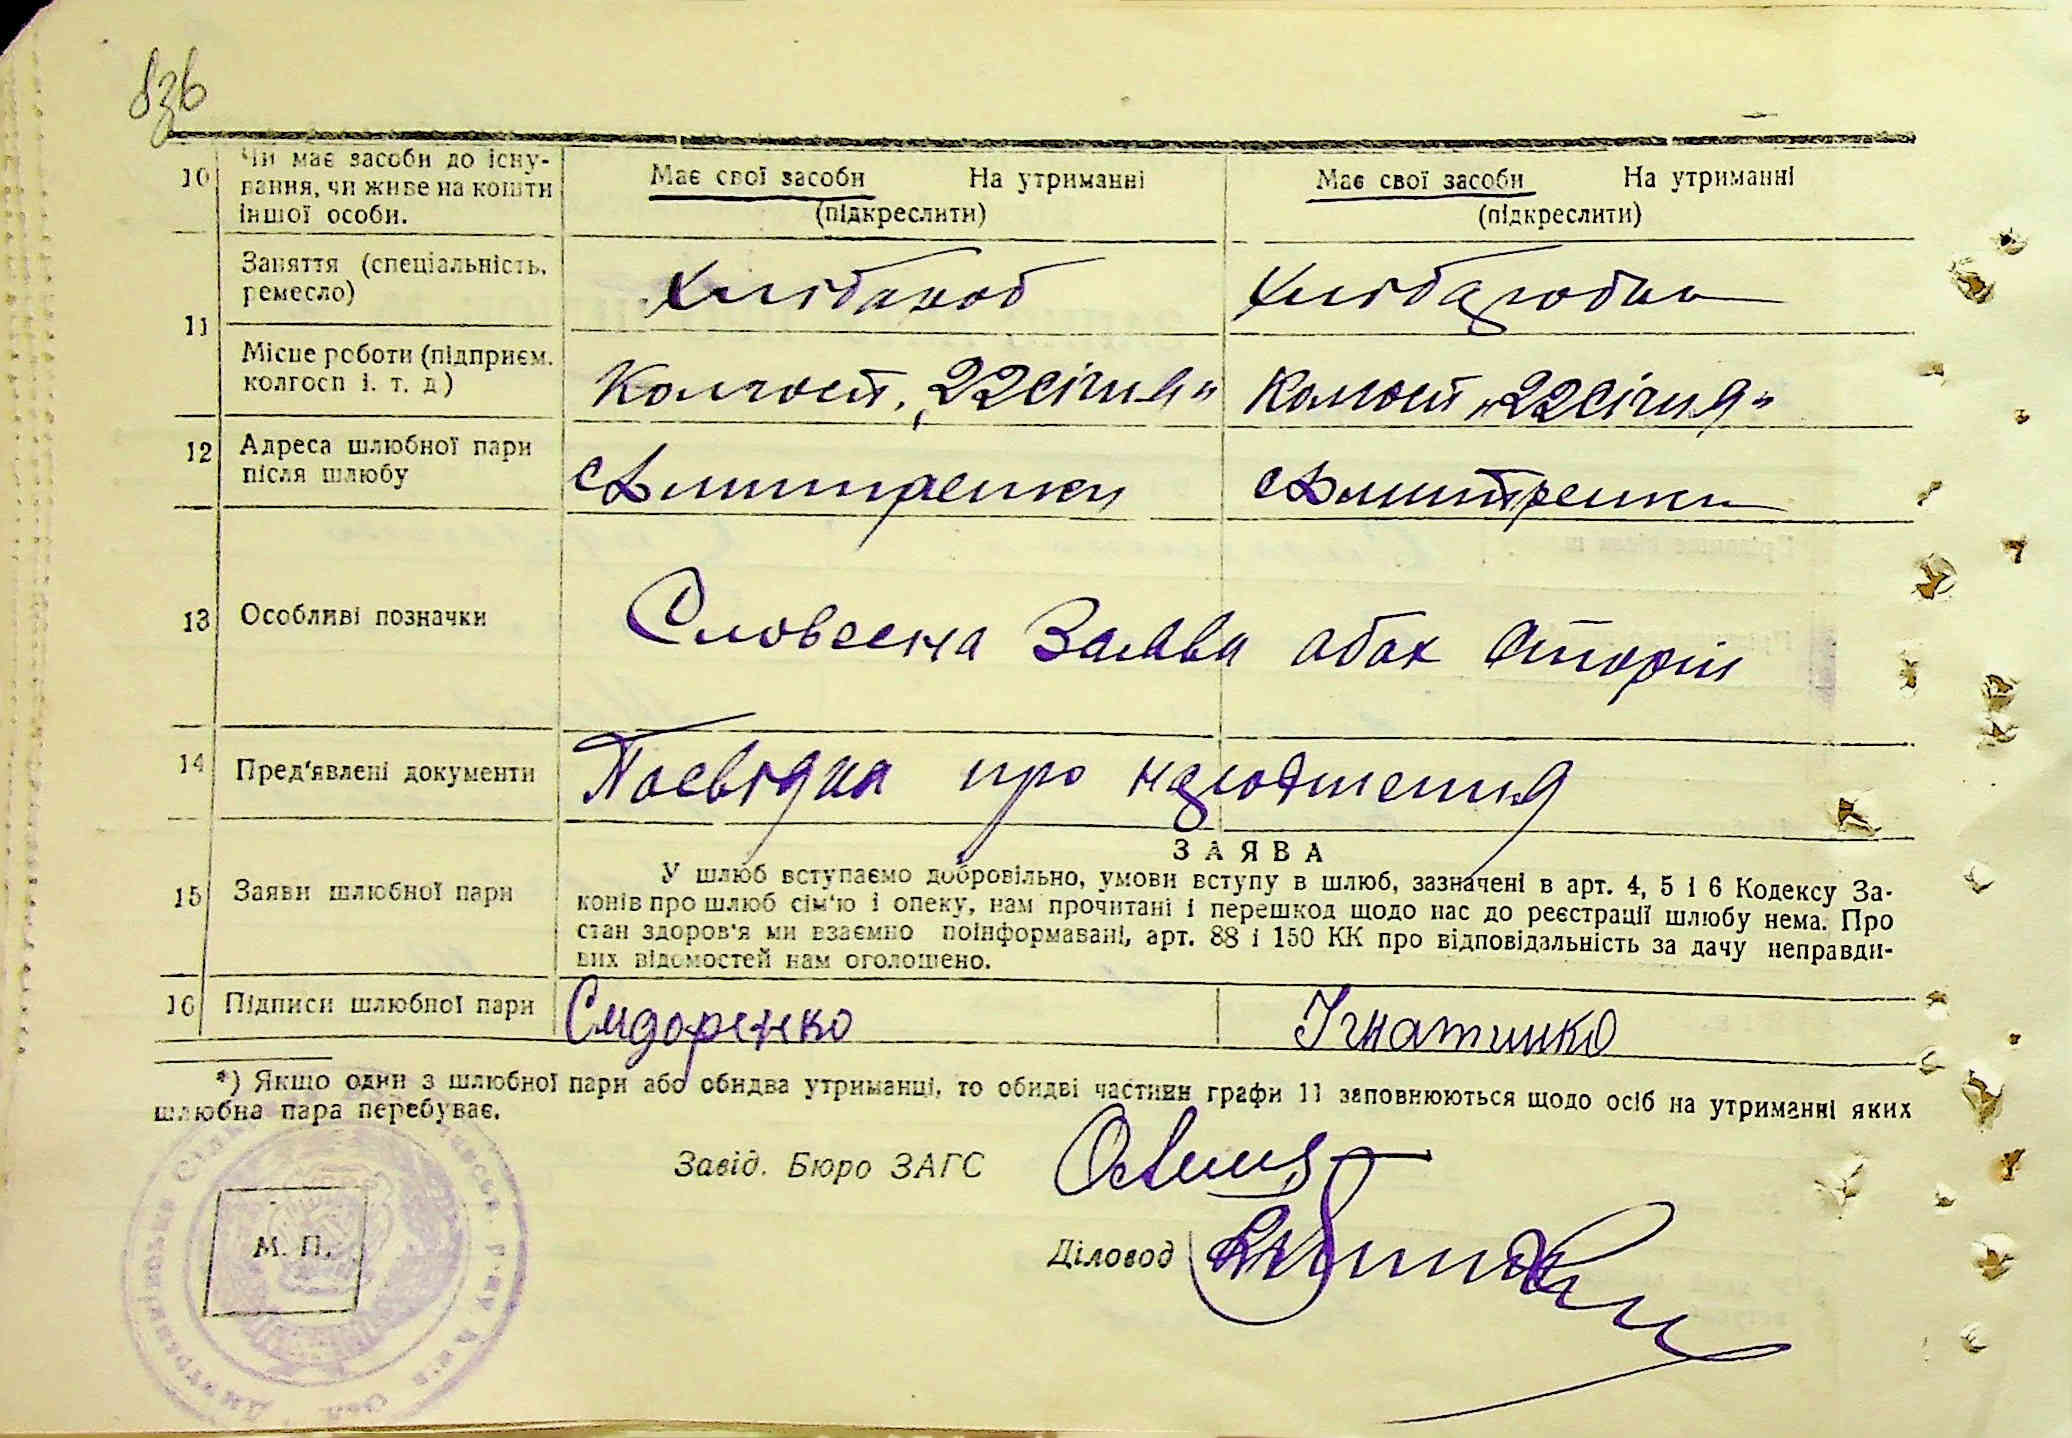 10 Чи має засоби до існу-
вання, чи живе на кошти
іншої особи.
Має свої засоби На утриманні
(підкреслити)
Має свої засоби На утриманні
(підкреслити)
11 Заняття (спеціальність,
ремесло)
Хлібароб
Хлібаробка
Місце роботи (підприєм.
колгосп і. т. д)
Колгосп „22 січня"
Колгосп „22 січня"
12 Адреса шлюбної пари
після шлюбу
с Дмитренки
с Дмитренки
13 Особливі позначки
Словесна Заява обох сторін
14 Пред'явлені документи
Посвідка про народження
15 Заяви шлюбної пари
ЗАЯВА
У шлюб вступаємо добровільно, умови вступу в шлюб, зазначені в арт. 4, 5 і 6 Кодексу За-
конів про шлюб сім'ю і опеку, нам прочитані і перешкод щодо нас до реєстрації шлюбу нема. Про
стан здоров'я ми взаємно поінформавані, арт. 88 і 150 КК про відповідальність за дачу неправди-
вих відомостей нам оголошено.
16 Підписи шлюбної пари
Сидоренко
Ігнатинко
*) Якщо один з шлюбної пари або обидва утриманці, то обидві частини графи 11 заповнюються щодо осіб на утриманні яких
шлюбна пара перебуває.
Завід. Бюро ЗАГС
Діловод
М. П.